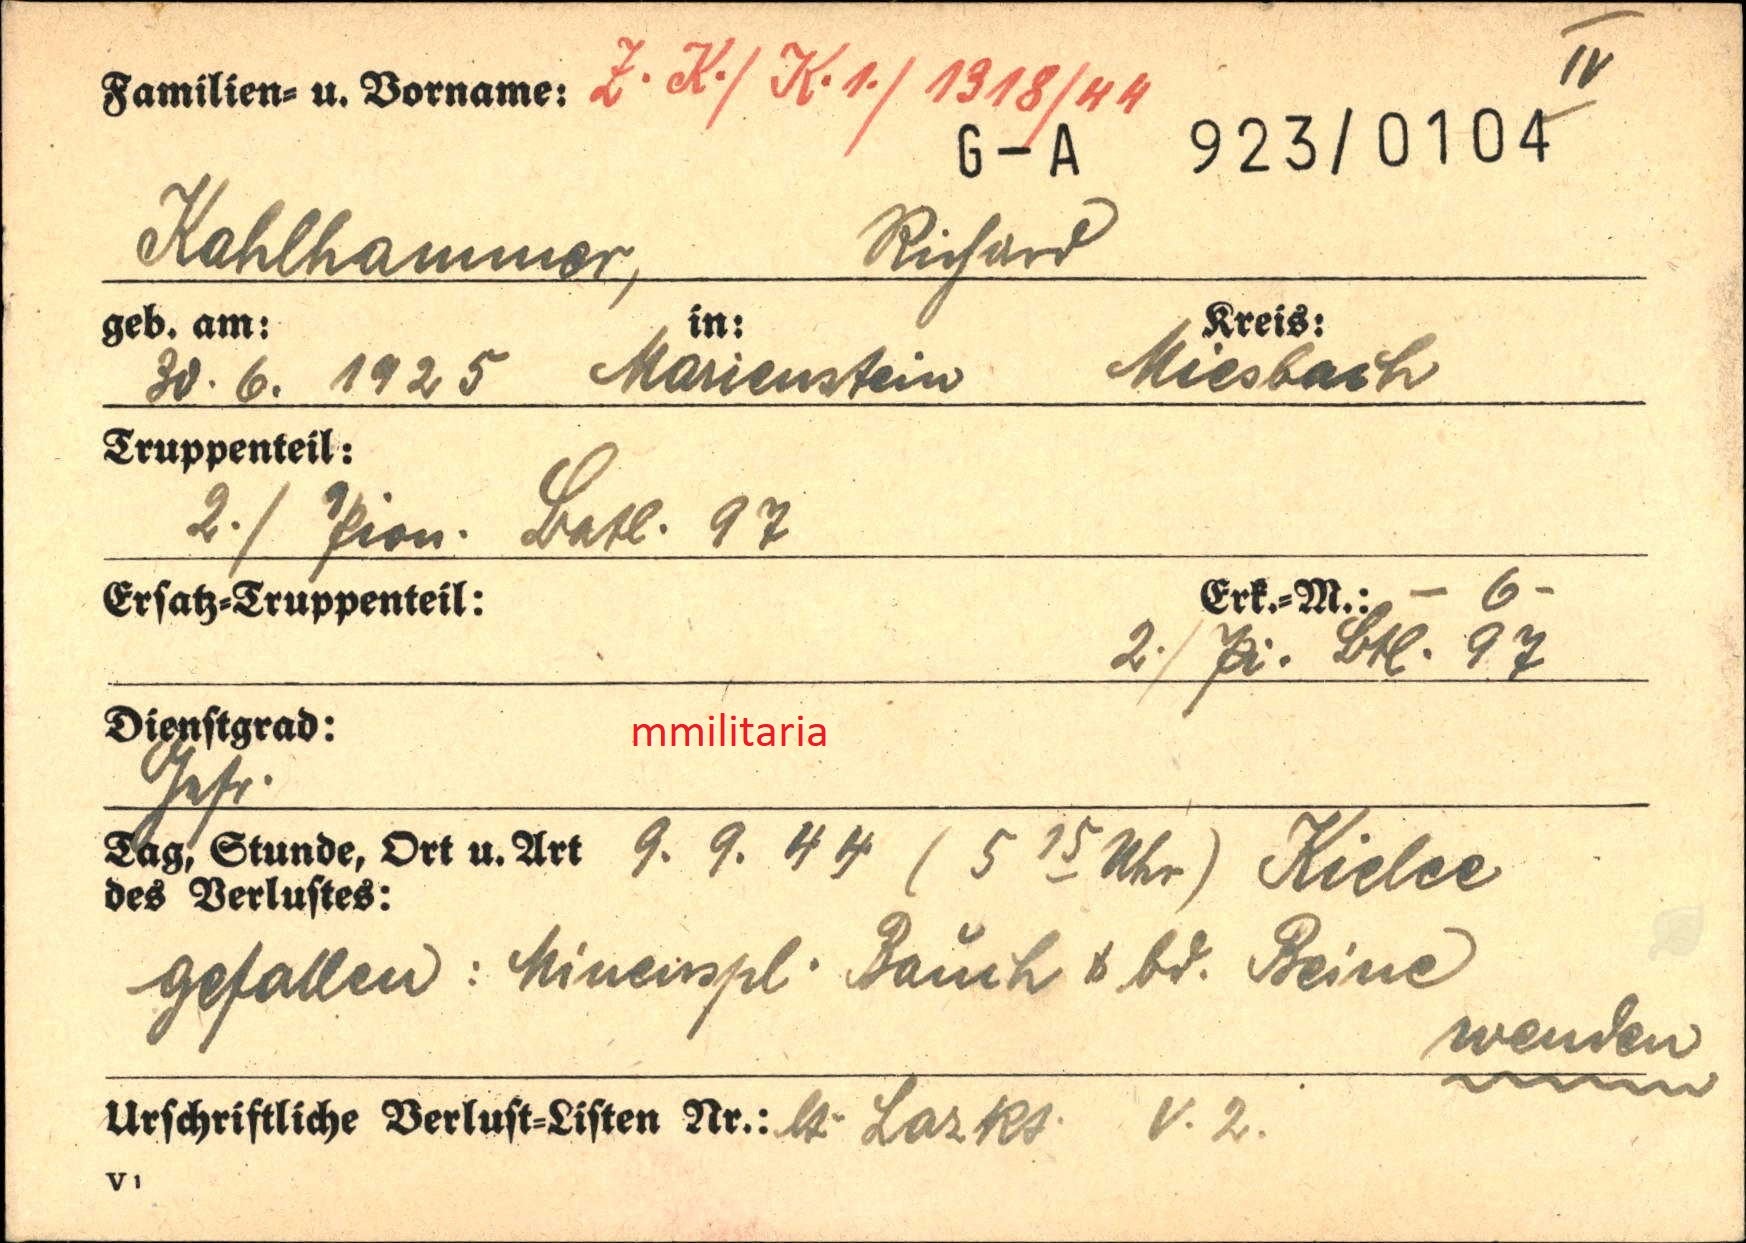 IV
Familien- u. Vorname: Z. K./ K. 1./ 1318/44
G-A 923/0104
Kahlhammer, Richard
geb. am: in: Kreis:
30. 6. 1925 Marienstein Miesbach
Truppenteil:
2./ Pion. Batl. 97
Ersatz-Truppenteil: Erk.-M.: - 6-
2./ Pi. Btl. 97
Dienstgrad:
mmilitaria
Gefr.
Tag, Stunde, Ort u. Art 9. 9. 44 (5 15 Uhr) Kielce
des Verlustes:
gefallen: Minenspl. Bauch & bd. Beine
wenden
Urschriftliche Verlust-Listen Nr.: lt. Laz Kt. V. 2.
V1